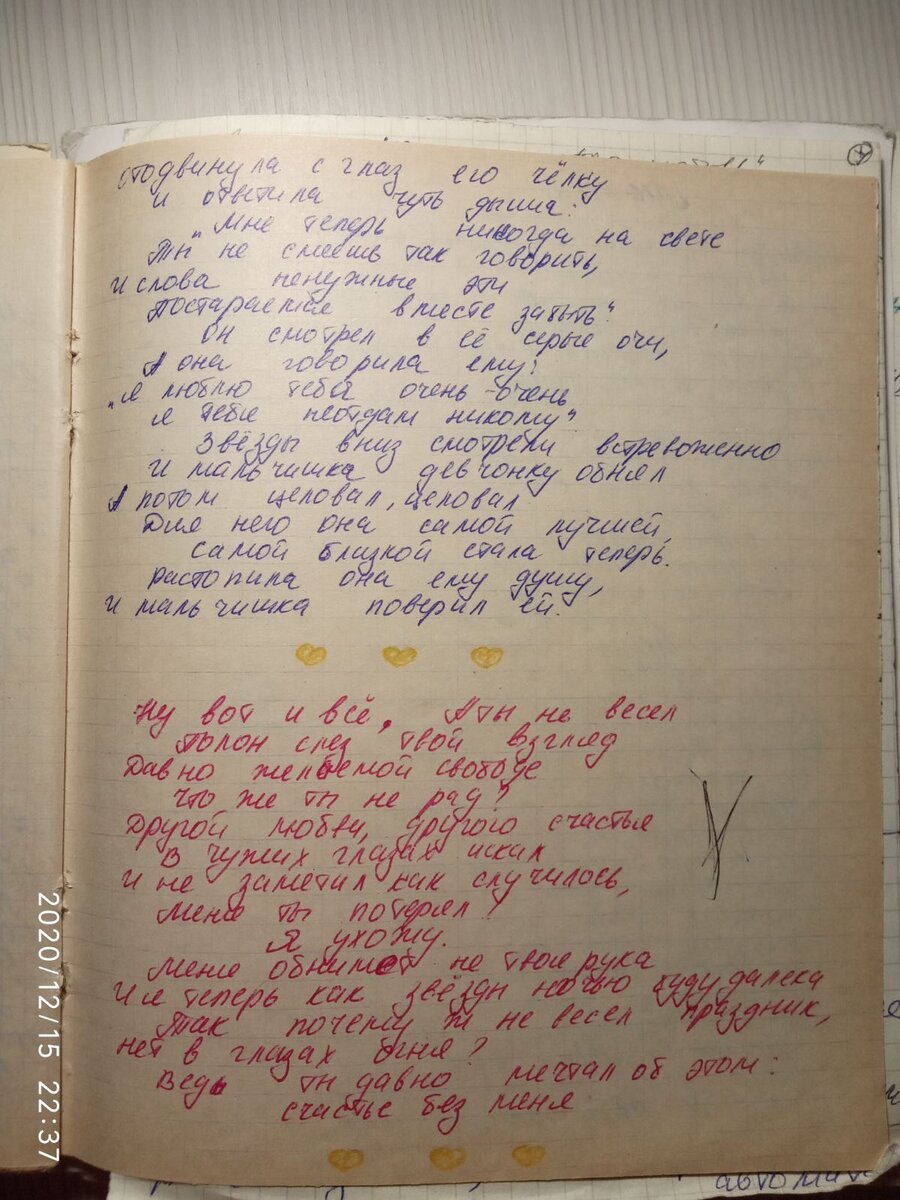 отодвинула с глаз его чёлку
и ответила чуть дыша:
„Мне теперь никогда на свете
Ты не смеешь так говорить,
и слова ненужные эти
Постараемся вместе забыть"
Он смотрел в её серые очи,
А она говорила ему:
„Я люблю тебя очень-очень
Я тебя неотдам никому"
Звёзды вниз смотрели встревоженно
И мальчишка девчонку обнял
А потом целовал, целовал
Для него она самой лучшей,
самой близкой стала теперь.
растопила она ему душу,
и мальчишка поверил ей.
Ну вот и всё, А ты не весел
Полон слез твой взгляд
Давно желаемой свободе
что же ты не рад?
Другой любви, другого счастья
В чужих глазах искал
И не заметил как случилось,
Меня ты потерял?
Я ухожу.
Меня обнимет не твоя рука
И я теперь как звёзды ночью буду далека
Так почему ж не весел праздник,
нет в глазах огня?
Ведь ты давно мечтал об этом:
счастье без меня
автомат
2020/12/15 22:37